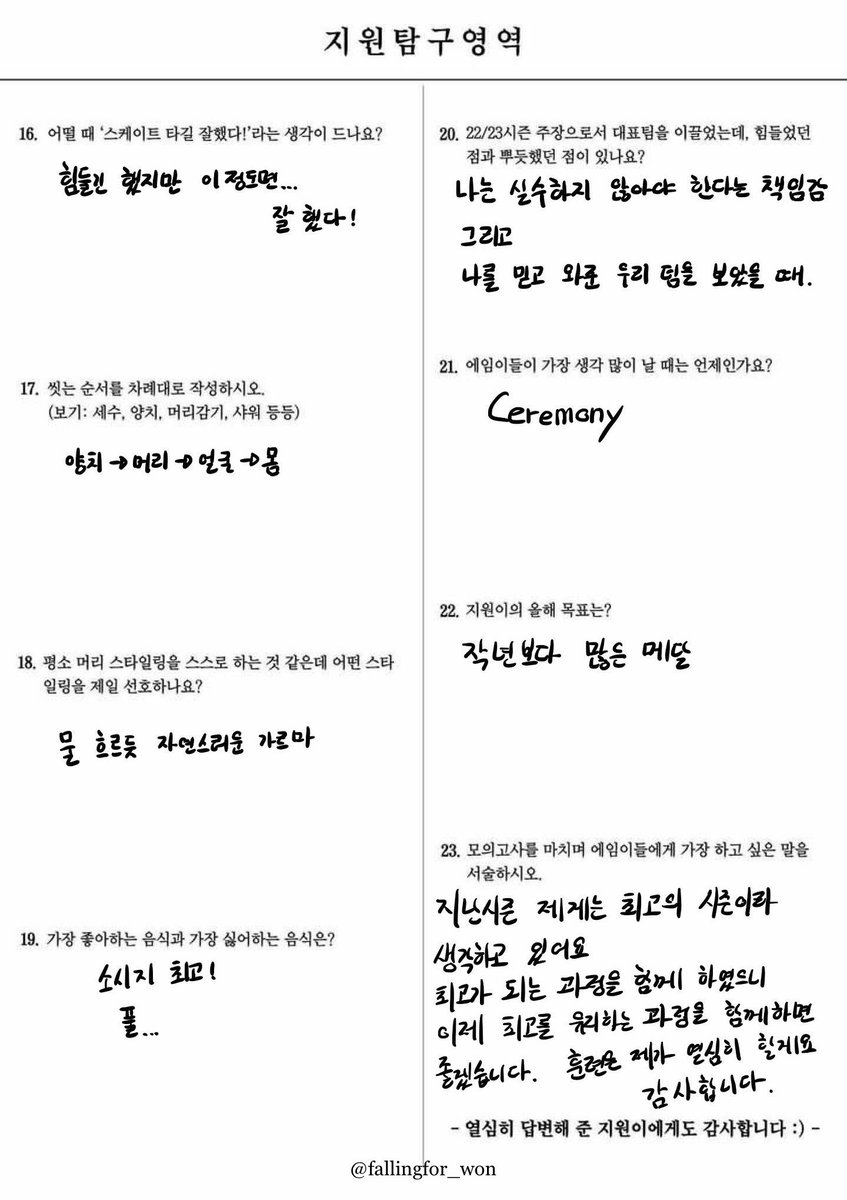 지원탐구영역
16. 어떨 때 '스케이트 타길 잘했다!'라는 생각이 드나요?
힘들긴 했지만 이정도면...
잘 했다!
17. 씻는 순서를 차례대로 작성하시오.
(보기: 세수, 양치, 머리감기, 샤워 등등)
양치→머리→얼굴→몸
18. 평소 머리 스타일링을 스스로 하는 것 같은데 어떤 스타
일링을 제일 선호하나요?
물 흐르듯 자연스러운 가르마
19. 가장 좋아하는 음식과 가장 싫어하는 음식은?
소시지 최고!
풀...
20. 22/23시즌 주장으로서 대표팀을 이끌었는데, 힘들었던
점과 뿌듯했던 점이 있나요?
나는 실수하지 않아야 한다는 책임감
그리고
나를 믿고 와준 우리 팀을 보았을 때.
21. 에임이들이 가장 생각 많이 날 때는 언제인가요?
Ceremony
22. 지원이의 올해 목표는?
작년보다 많은 메달
23. 모의고사를 마치며 에임이들에게 가장 하고 싶은 말을
서술하시오.
지난시즌 제게는 최고의 시즌이라
생각하고 있어요
최고가 되는 과정을 함께 하였으니
이제 최고를 유리하는 과정을 함께하면
좋겠습니다. 훈련은 제가 열심히 할게요
감사합니다.
- 열심히 답변해 준 지원이에게도 감사합니다 :) -
@fallingfor_won